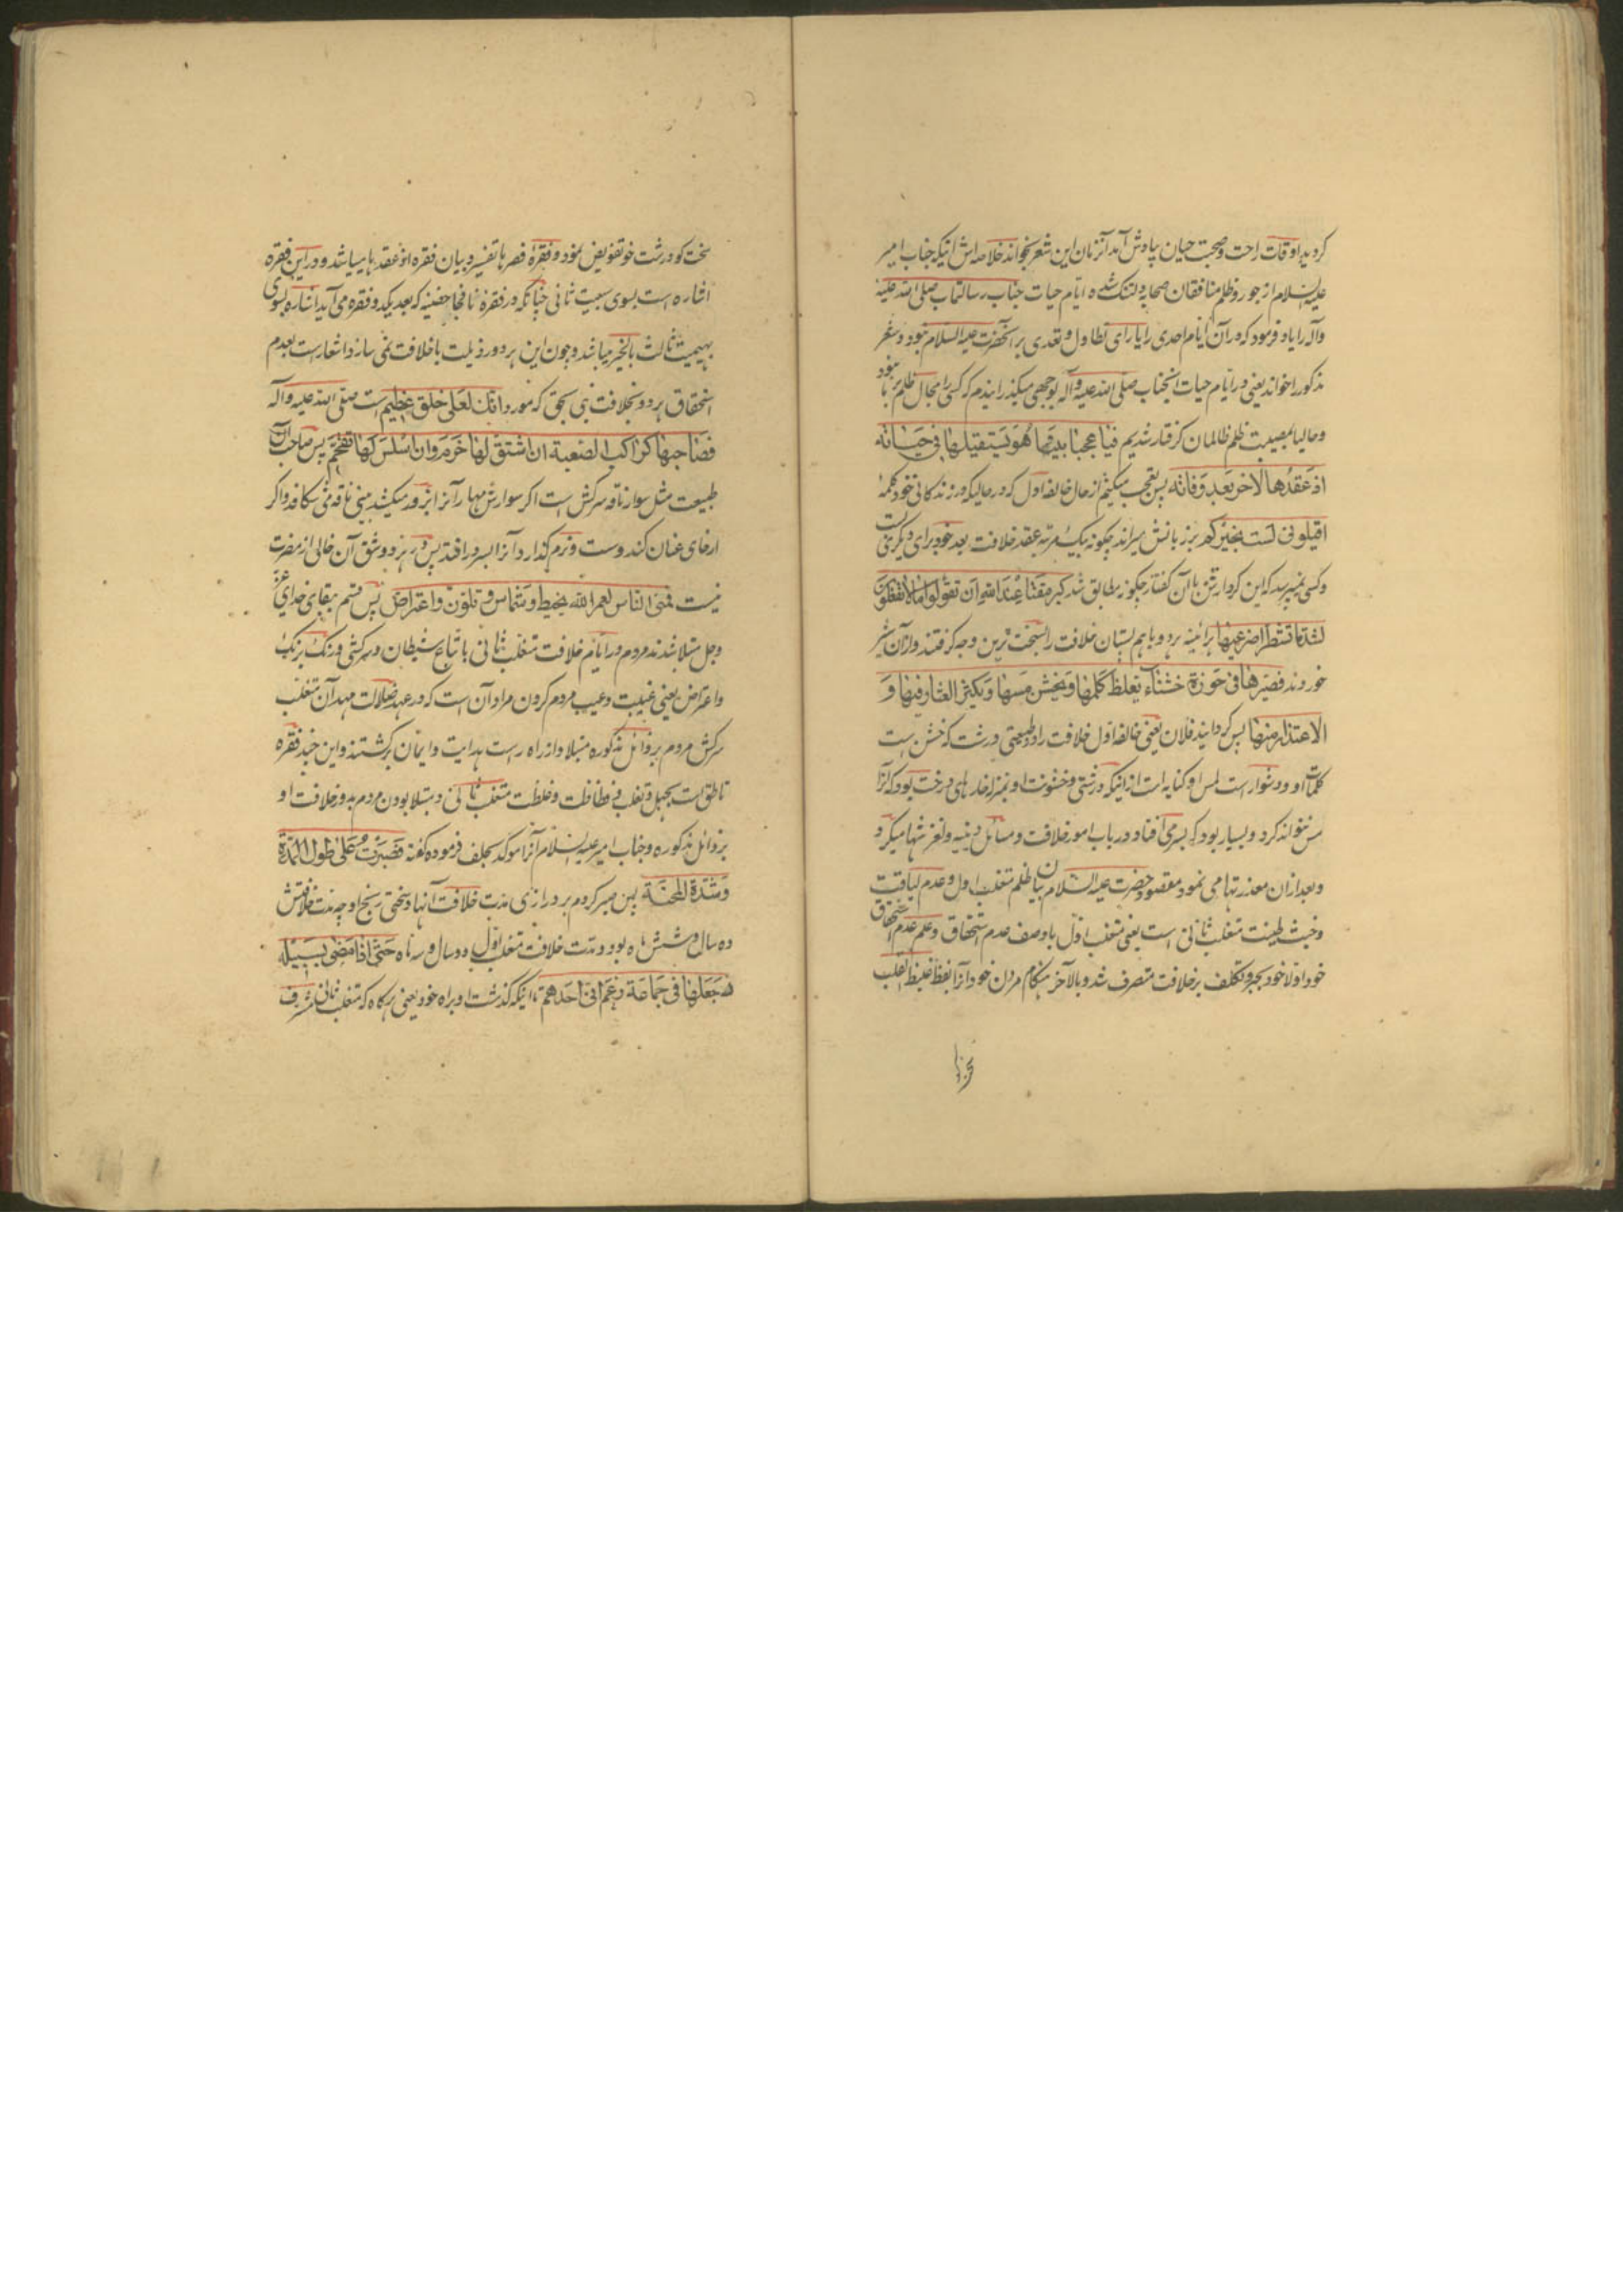 کردید اوقات راحت و صحبت حیان یادش آمد آنزمان این شعر بخواند خلاصه اش اینکه جناب امیر
علیه السلام از جور و ظلم منافقان صحابه دلتنک شده ایام حیات جناب رسالتمآب صلی الله علیه
وآله را یاد فرمود که در آن ایام احدی را یارای تطاول و تعدی بر آنحضرت علیه السلام نبود و شعر
مذکور را خواند یعنی در ایام حیات آنجناب صلی الله علیه وآله بوجهی میکذرانیدم که کسی را مجال ظلم بر ما نبود
و حالیا بمصیبت ظلم ظالمان کرفتار شدیم فیا عجبا بینما هو یستقیلها فی حیاته
اذ عقدها لآخر بعد وفاته پس تعجب میکنم از حال خالفه اول که در حالیکه در زندکانی خود کلمهٔ
اقیلونی لست بخیرکم بر زبانش میراند چکونه یک مرتبه عقد خلافت بعد خود برای دیکری بست
وکسی نمیپرسد که این کردارش باآن کفتار چکونه مطابق شد کبر مقتا عند الله ان تقولوا ما لا تفعلون
لشد ما تشطرا ضرعیها هرآئینه هردو باهم پستان خلافت را بسخت ترین وجه کرفتند و ازآن شیر
خوردند فصیرها فی حوزة خشناء یغلظ کلمها ویخشن مسها ویکثر العثار فیها و
الاعتذار منها پس کردانید فلان یعنی خالفه اول خلافت را در طبیعتی درشت که خشن است
کلمات او و دشوار است لمس او کنایه است از اینکه درشتی و خشونت او بمنزله خار های درخت بود که آنرا
مس نتواند کرد و بسیار بود که بسر می افتاد در باب امور خلافت و مسائل دینیه و لغزشها میکرد
و بعد ازان معذرتها می نمود مقصود حضرت علیه السلام بیان ظلم متغلب اول و عدم لیاقت
و خبث طینت متغلب ثانی است یعنی متغلب اول باوصف عدم استحقاق و علم عدم استحقاق
خود اولا خود بجبر و تکلف بر خلافت متصرف شد و بالآخر هنکام مردن خود آنرا بفظ غلیظ القلب
سخت کو درشت خو تفویض نمود و فقرهٔ فصیرها تفسیر و بیان فقره اذ عقدها میباشد و در این فقره
اشاره است بسوی سبعیت ثانی چنانکه در فقرهٔ نافجا حضنیه که بعد یکدو فقره می آید اشاره بسوی
بهیمیت ثالث بالخیر میباشد و چون این هر دو رذیلت با خلافت نمی سازد اشعار است بعدم
استحقاق هردو بخلافت نبی بحق که مورد انک لعلی خلق عظیم است صلی الله علیه وآله
فصاحبها کراکب الصعبة ان اشنق لها خرم وان اسلس لها تقحم پس صاحب آن
طبیعت مثل سوار ناقه سرکش است اکر سوارش مهار آنرا بزور میکشد بینی ناقه می شکافد و اکر
ارخای عنان کند و سست و نرم کذارد آنرا بسر در افتد پس در هر دو شق آن خالی از مضرت
نیست فمنی الناس لعمر الله بخبط وشماس وتلون واعتراض پس قسم ببقای خدای عز
و جل مبتلا شدند مردم در ایام خلافت متغلب ثانی باتباع شیطان و سرکشی و رنک برنک
و اعتراض یعنی غیبت و عیب مردم کردن مراد آن است که در عهد ضلالت مهد آن متغلب
سرکش مردم برذائل مذکوره مبتلا و از راه راست هدایت و ایمان برکشتند و این چند فقره
ناطق است بجهل و تغلب و فظاظت و غلظت متغلب ثانی و مبتلا بودن مردم بدور خلافت او
برذائل مذکوره و جناب امیر علیه السلام آنرا موکد بحلف فرموده کفته فصبرت علی طول المدة
وشدة المحنة پس صبر کردم بر درازی مدت خلافت آنها و سختی رنج او چه مدت خلافتش
ده سال و شش ماه بود و مدت خلافت متغلب اول دو سال و سه ماه حتی اذا مضی لسبیله
جعلها فی جماعة زعم انی احدهم تا اینکه کذشت او براه خود یعنی هرکاه که متغلب ثانی مشرف